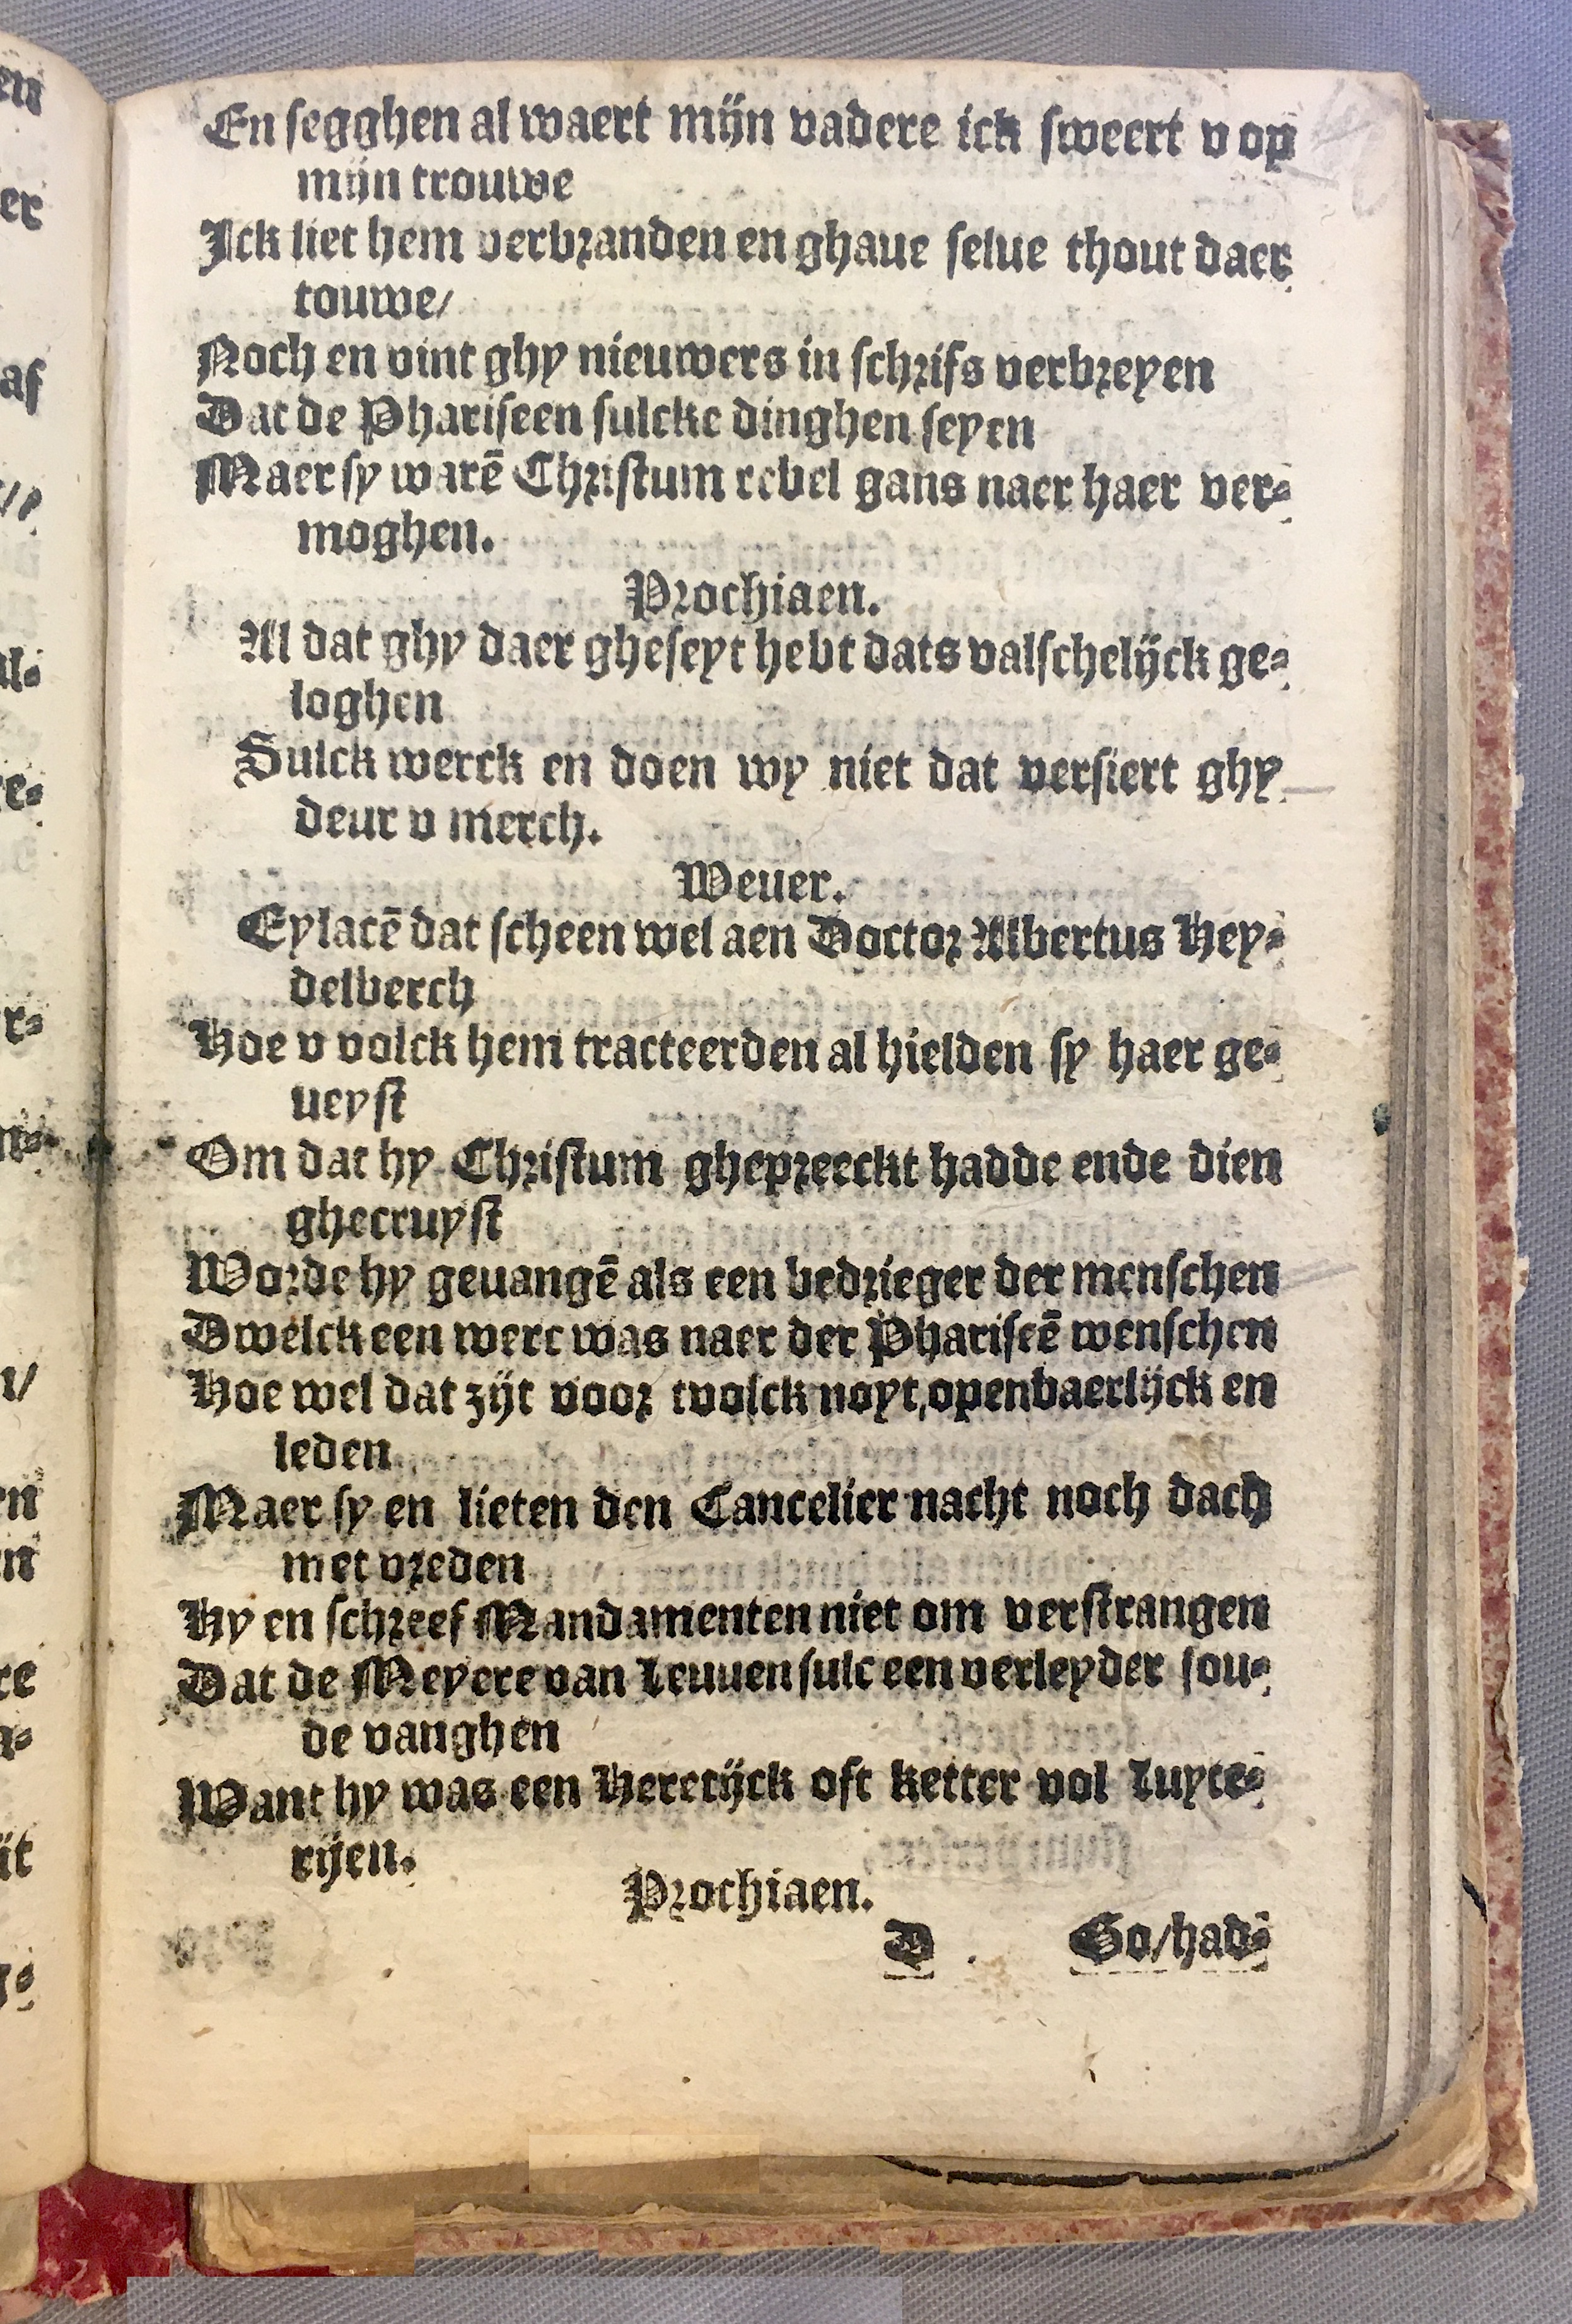 En segghen al waert mijn vadere ick sweert v op
mijn trouwe
Ick liet hem verbranden en ghaue selue thout daer
touwe/
Noch en vint ghy nieuwers in schrifs verbreyen
Dat de Phariseen sulcke dinghen seyen
Maer sy warē Christum rebel gans naer haer ver-
moghen.
Prochiaen.
Al dat ghy daer gheseyt hebt dats valschelijck ge-
loghen
Sulck werck en doen wy niet dat versiert ghy
deur v merch.
Weuer.
Eylacē dat scheen wel aen Doctor Albertus Hey-
delberch
Hoe v volck hem tracteerden al hielden sy haer ge-
ueyst
Om dat hy Christum ghepreeckt hadde ende dien
ghecruyst
Worde hy geuangē als een bedrieger der menschen
Dwelck een werc was naer der Phariseē wenschen
Hoe wel dat zijt voor tvolck noyt openbaerlijck en
leden
Maer sy en lieten den Cancelier nacht noch dach
met vreden
Hy en schreef Mandamenten niet om verstrangen
Dat de Meyere van Leuuen sulc een verleyder sou-
de vanghen
Want hy was een Heretijck oft ketter vol Luyte-
rijen.
Prochiaen.
D Go/had-
en
er
af
al-
re-
r-
n-
en
en
re
a-
ijt